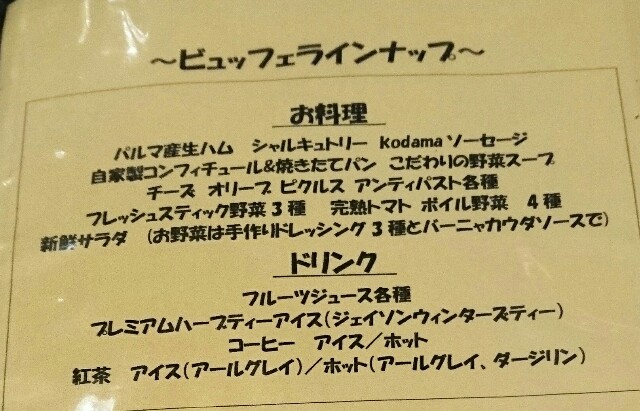 ～ビュッフェラインナップ～
お料理
パルマ産生ハム　シャルキュトリー　Kodamaソーセージ
自家製コンフィチュール&焼きたてパン　こだわりの野菜スープ
チーズ　オリーブ　ピクルス　アンティパスト各種
フレッシュスティック野菜３種　完熟トマト　ボイル野菜　４種
新鮮サラダ　（お野菜は手作りドレッシング３種とバーニャカウダソースで）
ドリンク
フルーツジュース各種
プレミアムハーブティーアイス（ジェイソンウィンターズティー）
コーヒー　アイス／ホット
紅茶　アイス（アールグレイ）／ホット（アールグレイ、ダージリン）